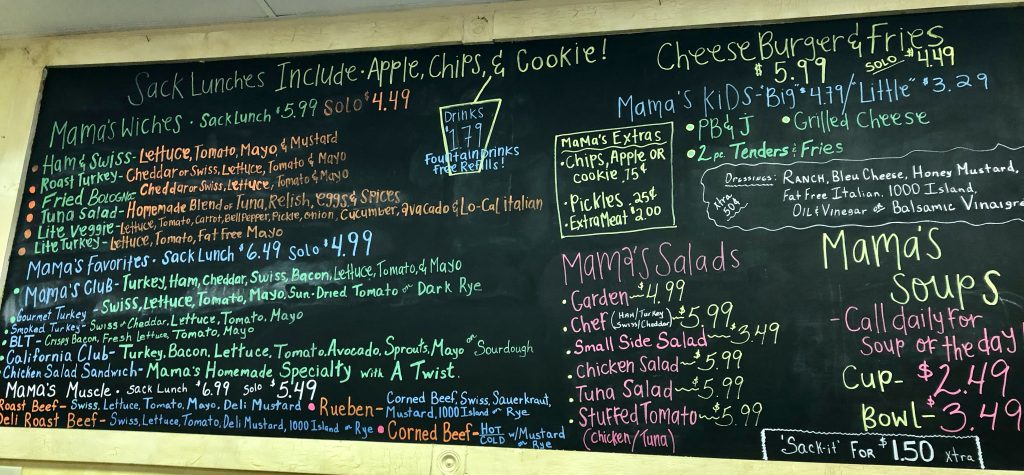 Sack Lunches Include · Apple, Chips, & Cookie!
Mama's Wiches · Sack Lunch $5.99 Solo $4.49
• Ham & Swiss - Lettuce, Tomato, Mayo & Mustard
• Roast Turkey - Cheddar or Swiss, Lettuce, Tomato & Mayo
• Fried Bologne - Cheddar or Swiss, Lettuce, Tomato & Mayo
• Tuna Salad - Homemade Blend of Tuna, Relish, eggs & Spices
• Lite Veggie - Lettuce, Tomato, Carrot, Bell Pepper, Pickle, onion, Cucumber, avacado & Lo-Cal italian
• Lite Turkey - Lettuce, Tomato, Fat Free Mayo
Mama's Favorites · Sack Lunch $6.49 Solo $4.99
• Mama's Club - Turkey, Ham, Cheddar, Swiss, Bacon, Lettuce, Tomato, & Mayo
• Gourmet Turkey - Swiss, Lettuce, Tomato, Mayo, Sun-Dried Tomato on Dark Rye
• Smoked Turkey - Swiss or Cheddar, Lettuce, Tomato, Mayo
• BLT - Crispy Bacon, Fresh Lettuce, Tomato, Mayo
• California Club - Turkey, Bacon, Lettuce, Tomato, Avocado, Sprouts, Mayo on Sourdough
• Chicken Salad Sandwich - Mama's Homemade Specialty with A Twist.
Mama's Muscle · Sack Lunch $6.99 Solo $5.49
Roast Beef - Swiss, Lettuce, Tomato, Mayo, Deli Mustard
Deli Roast Beef - Swiss, Lettuce, Tomato, Deli Mustard, 1000 Island on Rye
• Rueben - Corned Beef, Swiss, Sauerkraut,
Mustard, 1000 Island on Rye
• Corned Beef - HOT
COLD w/Mustard
on Rye
Drinks
$1.79
Fountain drinks
free Refills!
Cheese Burger & Fries
$5.99 SOLO $4.49
Mama's KIDS - "Big" $4.79/"Little" $3.29
• PB & J • Grilled Cheese
• 2 pc Tenders & Fries
Mama's Extras
• Chips, Apple OR
Cookie .75¢
• Pickles .25¢
• Extra Meat $2.00
Dressings: Ranch, Bleu Cheese, Honey Mustard,
Fat Free Italian, 1000 Island,
Oil & Vinegar or Balsamic Vinaigre
Xtra 50¢
Mama's Salads
• Garden ~ $4.99
• Chef (Ham/Turkey Swiss/Cheddar) ~ $5.99
• Small Side Salad ~ $3.49
• Chicken Salad ~ $5.99
• Tuna Salad ~ $5.99
• Stuffed Tomato ~ $5.99
(Chicken/Tuna)
Mama's
Soups
- Call daily for
Soup of the day!
Cup - $2.49
Bowl - $3.49
'Sack-it' For $1.50 xtra